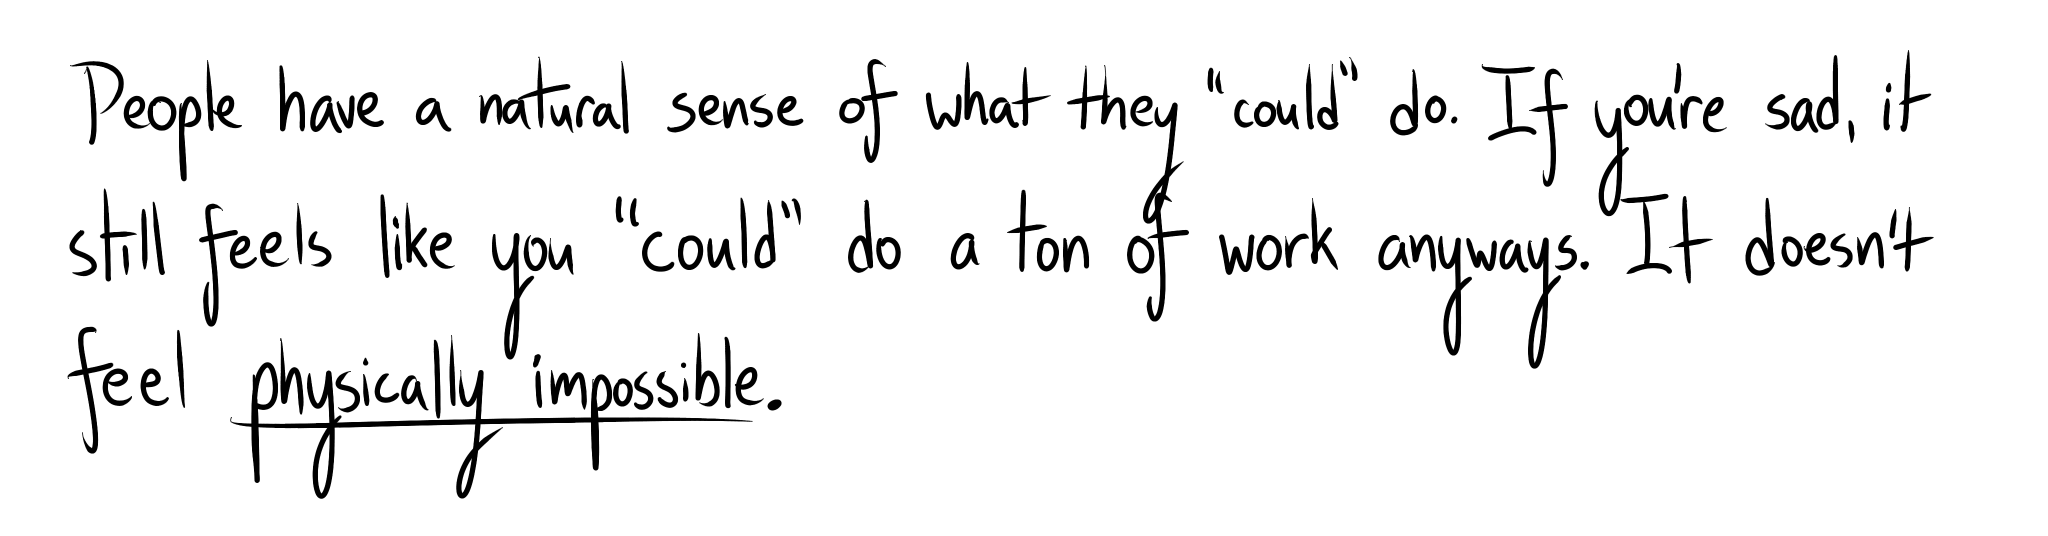 People have a natural sense of what they "could" do. If you're sad, it
still feels like you "could" do a ton of work anyways. It doesn't
feel physically impossible.